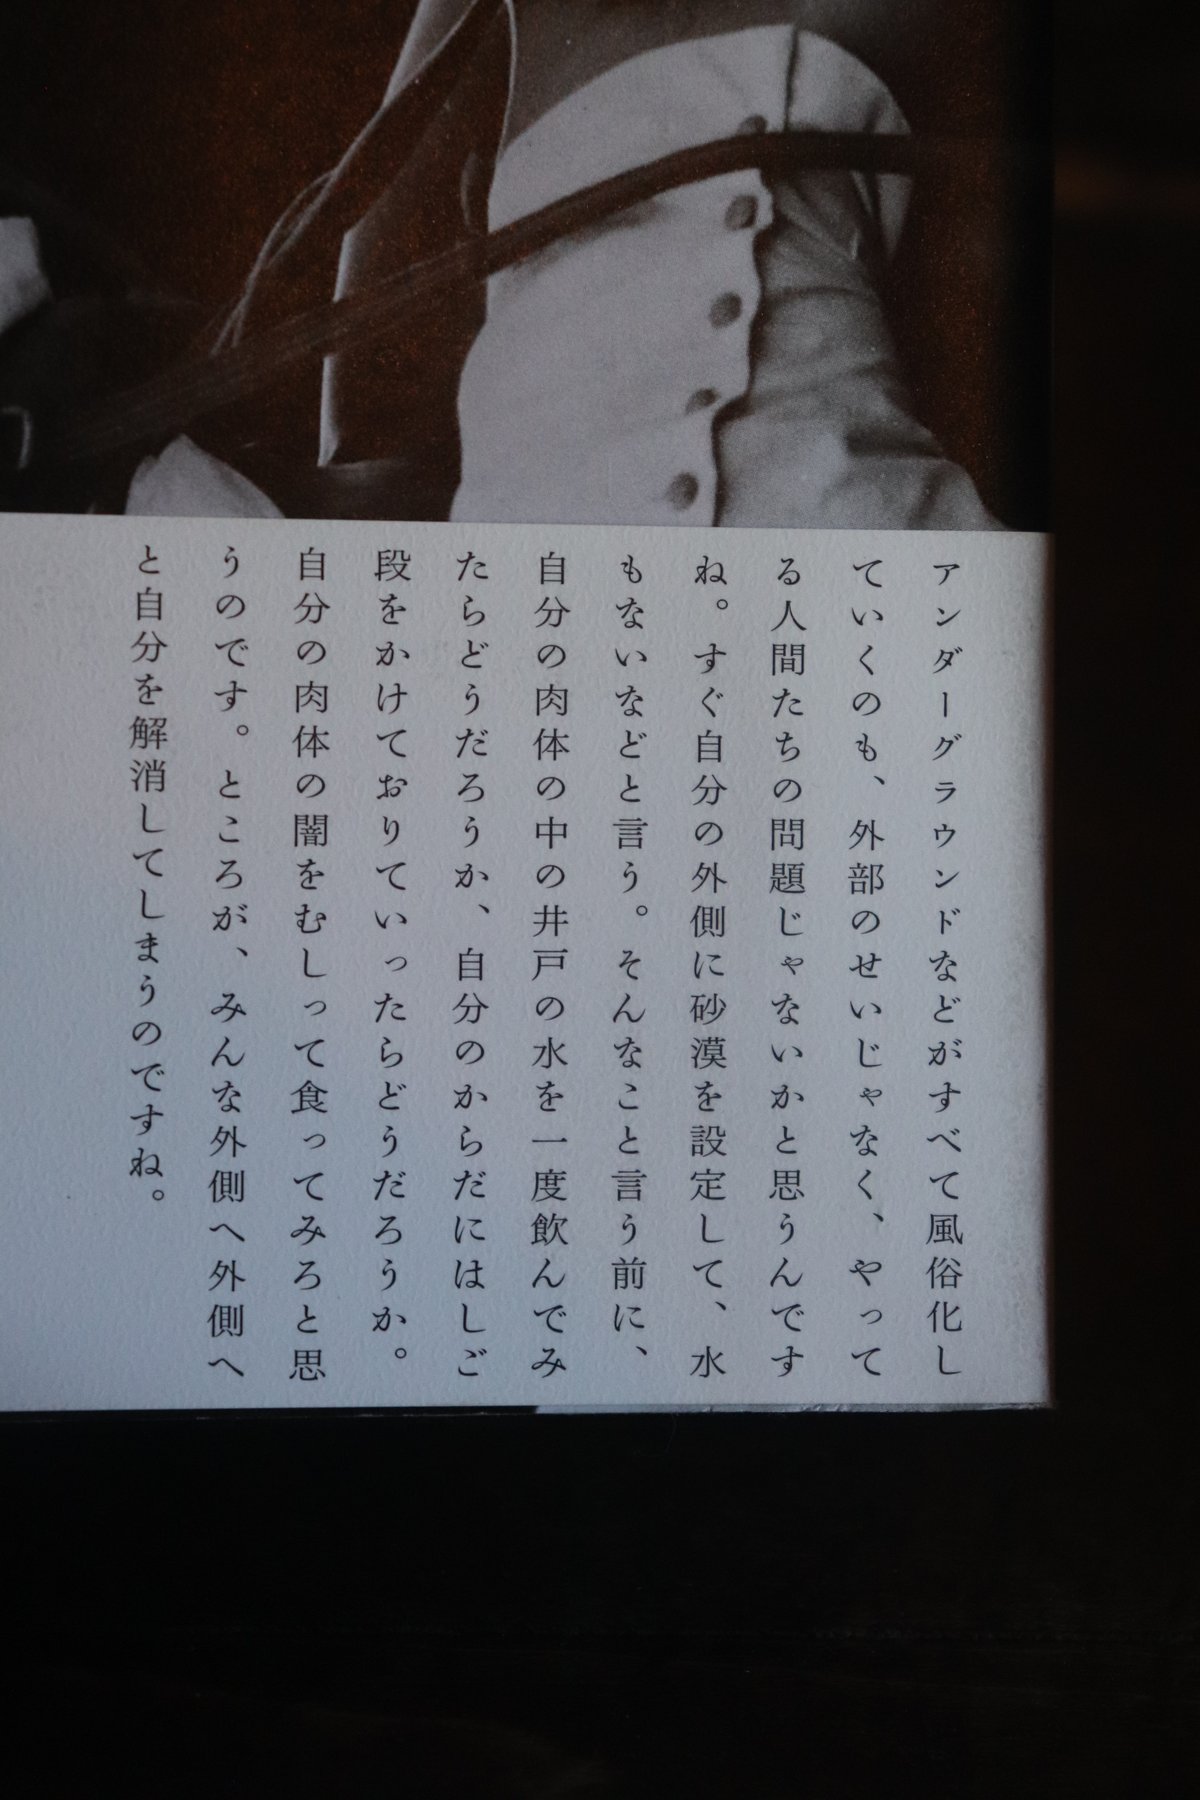 アンダーグラウンドなどがすべて風俗化し
ていくのも、外部のせいじゃなく、やって
る人間たちの問題じゃないかと思うんです
ね。すぐ自分の外側に砂漠を設定して、水
もないなどと言う。そんなこと言う前に、
自分の肉体の中の井戸の水を一度飲んでみ
たらどうだろうか、自分のからだにはしご
段をかけておりていったらどうだろうか。
自分の肉体の闇をむしって食ってみろと思
うのです。ところが、みんな外側へ外側へ
と自分を解消してしまうのですね。